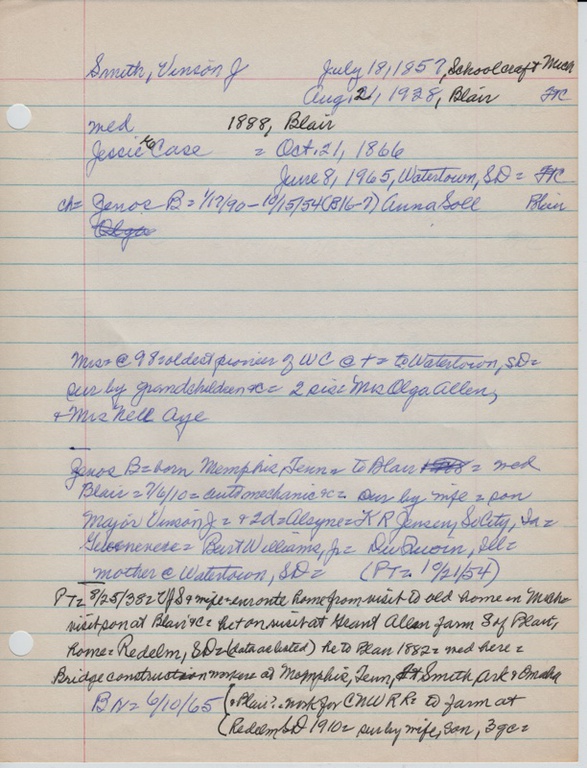 Smith, Vinson J July 18, 1857, Schoolcraft Mich
Aug. 2, 1938, Blair FC
med 1888, Blair
Jessie Case = Oct. 21, 1866
June 8, 1965, Watertown, SD = FC
ch= Zenos B = 1/17/90 - 10/15/54 (B16-7) Anna Soll Blair
Olga
Mrs = @ 98 = oldest pioneer of WC @ + = to Watertown, SD =
sur by grandchildren &c = 2 sis = Mrs Olga Allen,
& Mrs Nell Aye
Zenos B = born Memphis, Tenn = to Blair = med
Blair = 7/6/10 = auto mechanic &c = sur by wife = son
Major Vinson J = & 2d = Alayne = K R Jensen, S. City, Ia =
= Burt Williams, Jr = Du Quoin, Ill =
mother @ Watertown, SD = (PT = 10/21/54)
PT = 8/25/38 = VJS & wife = enroute home from visit to old home in Mich =
visit son at Blair &c = het on visit at Grant Allen farm S of Blair,
home = Redelm, SD = (data as listed) he to Blair 1882 = med here =
Bridge construction worker at Memphis, Tenn, Ft Smith, Ark & Omaha
BN = 6/10/65 (& Blair? = work for CNW RR = to farm at
(Redelm SD 1910 = sur by wife, son, 3 gc =